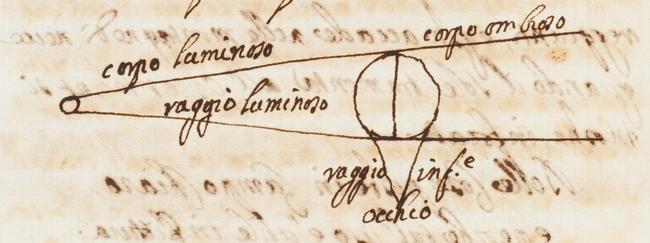 corpo luminoso
corpo ombroso
raggio luminoso
raggio inf.e
occhio